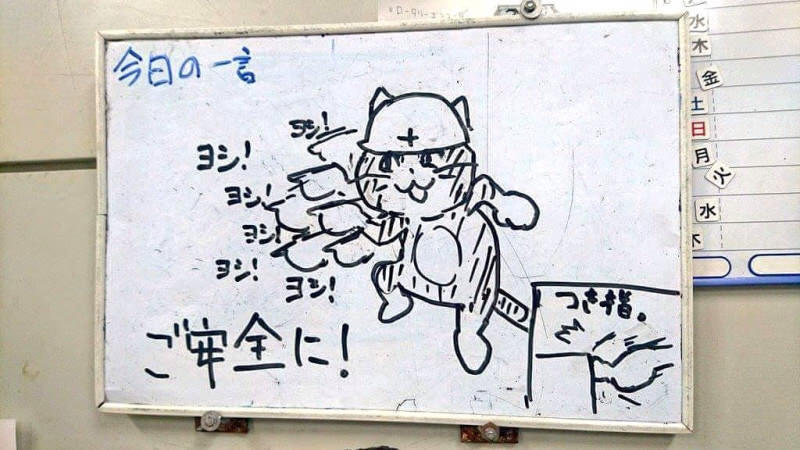 今日の一言
ヨシ!
ヨシ!
ヨシ!
ヨシ!
ヨシ!
ヨシ!
ご安全に!
つき指。
水
木
金
土
日
月
火
水
木